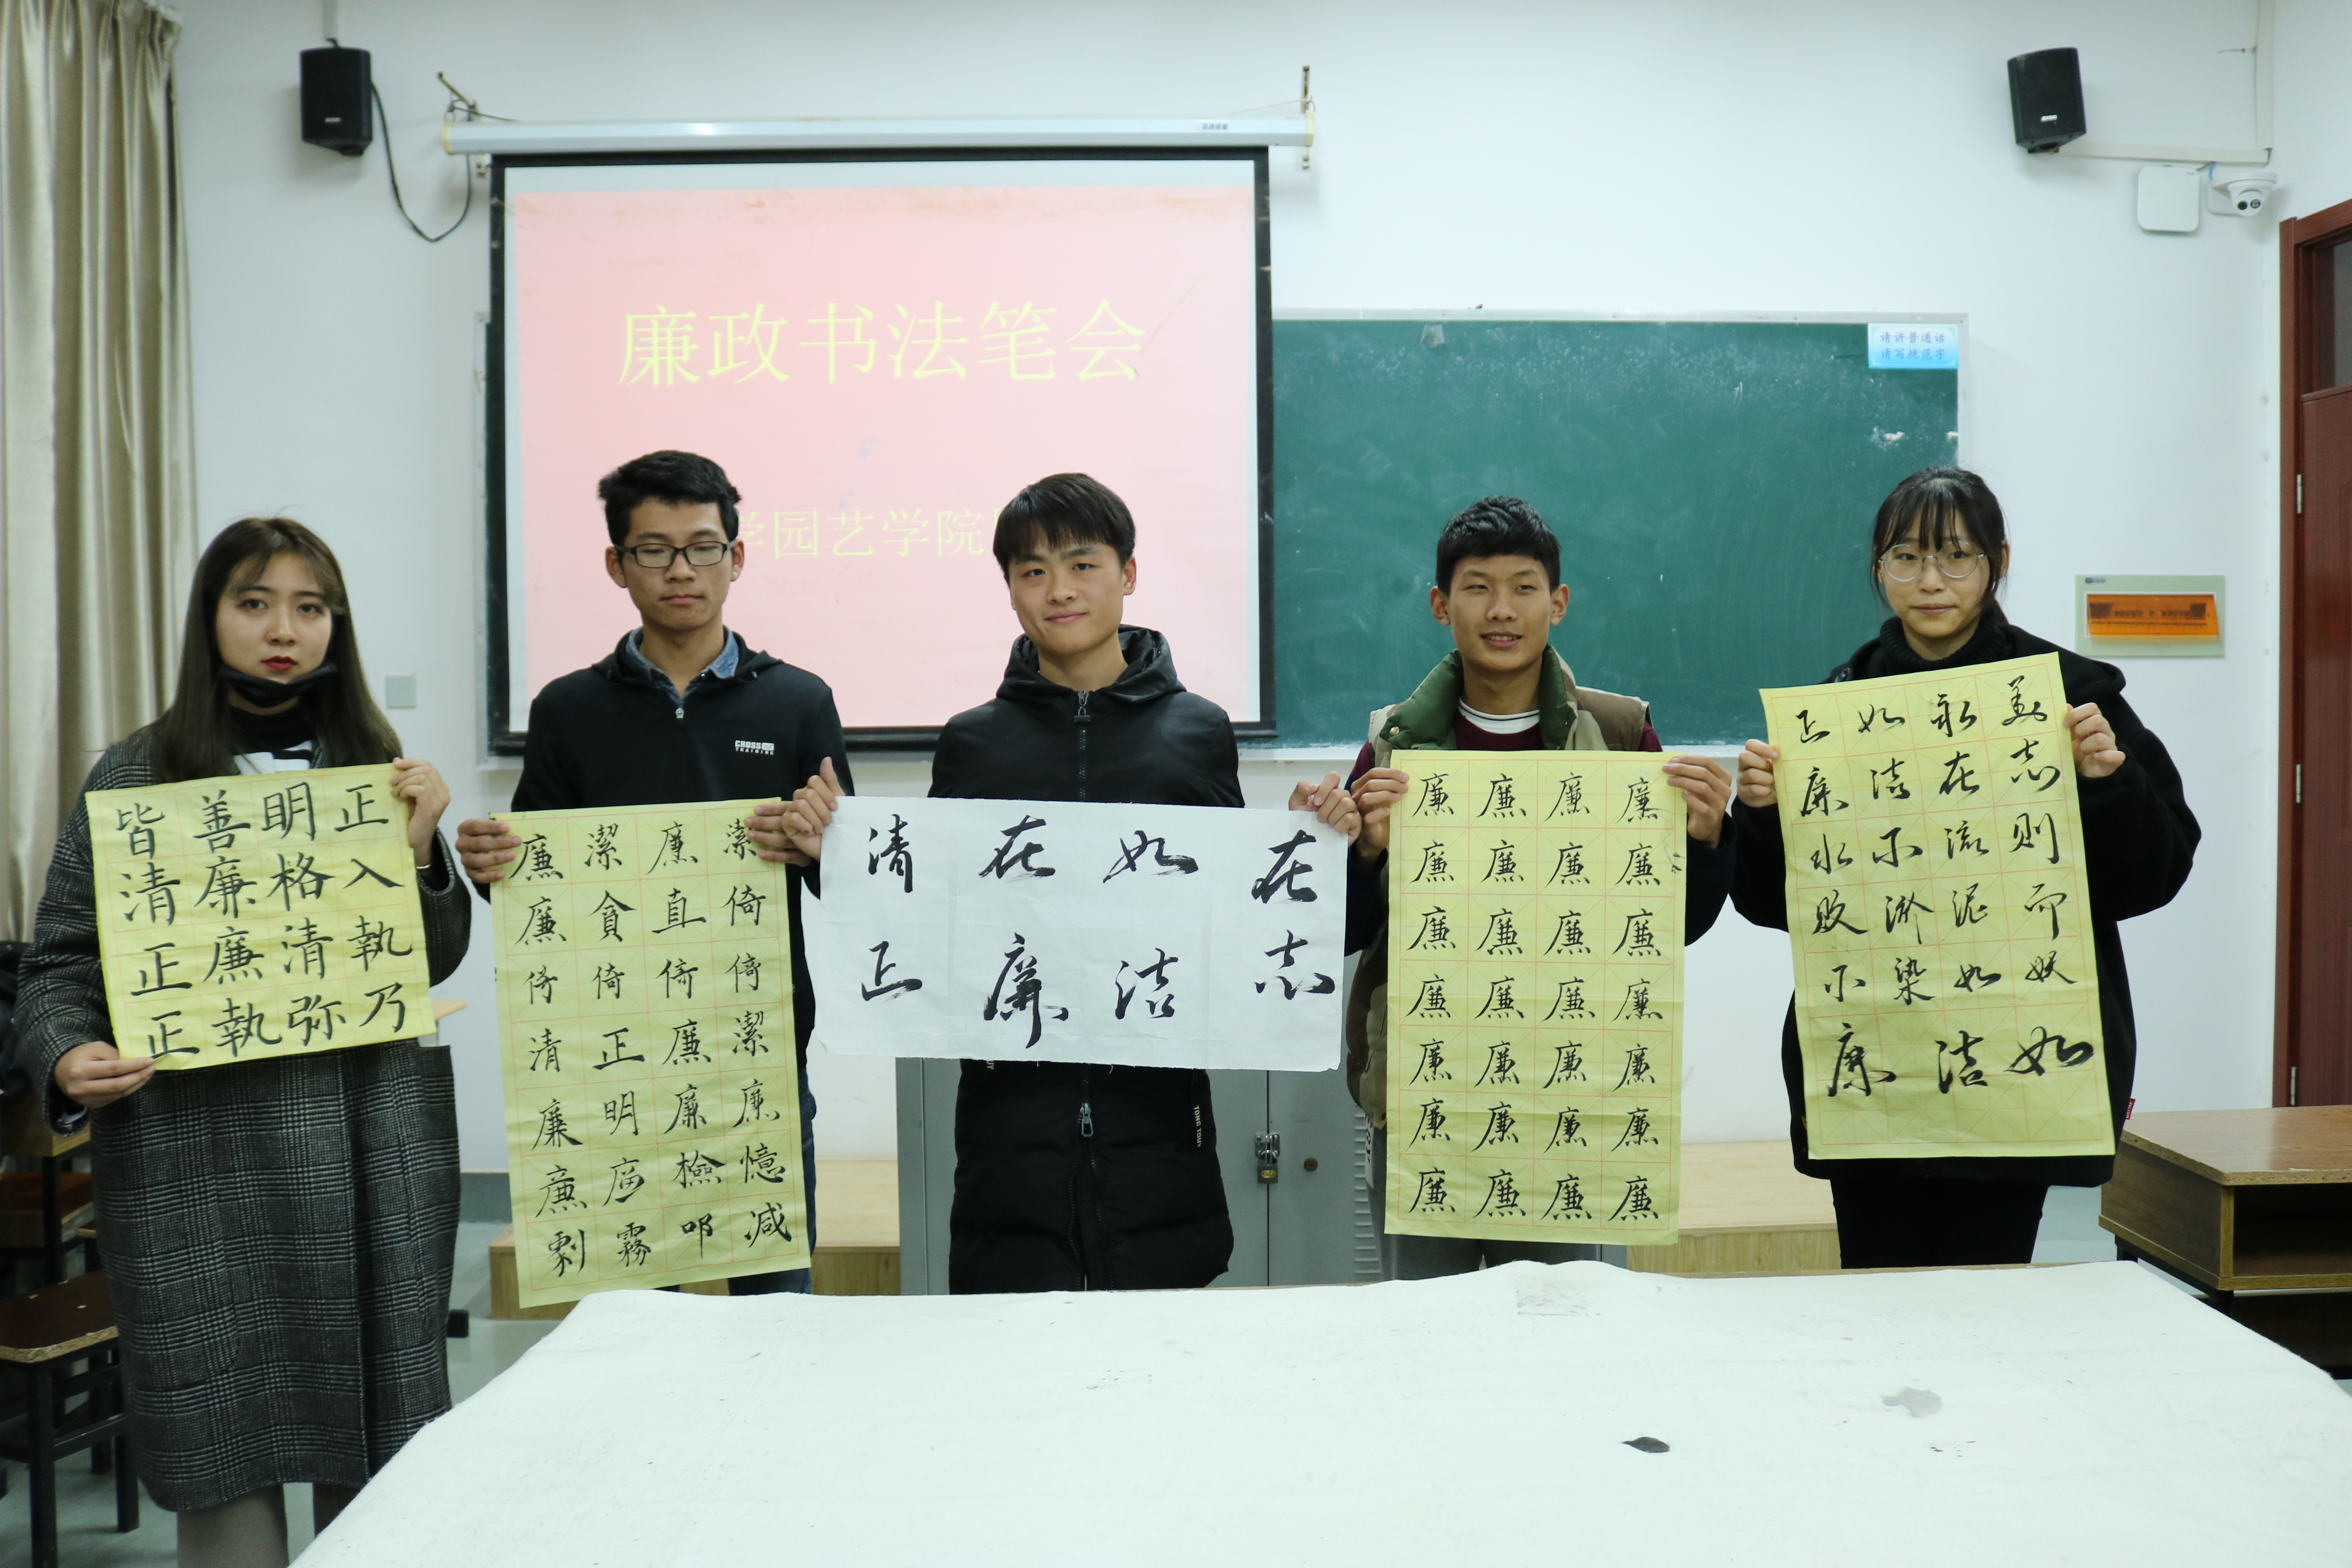 廉政书法笔会
学园艺学院
请讲普通话
请写规范字
皆善明正
清廉格入
正廉清執
正執弥乃
CROSS
TRAINING
廉潔廉潔
廉貪直倚
倚倚倚倚
清正廉潔
廉明廉廉
廉檢憶
霧叩减
清在如在
正廉洁志
TONG TOUY
廉廉廉廉
廉廉廉廉
廉廉廉廉
廉廉廉廉
廉廉廉廉
廉廉廉廉
廉廉廉廉
正如永美
廉洁在志
水不流则
败淤泥而
不染如妖
廉洁如